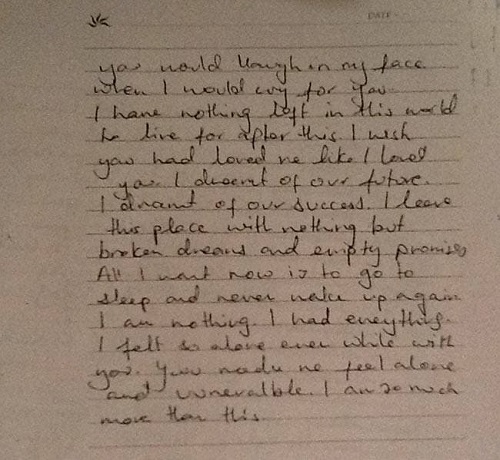 DATE
you would laugh in my face
when I would cry for you.
I have nothing left in this world
to live for after this. I wish
you had loved me like I loved
you. I dreamt of our future.
I dreamt of our success. I leave
this place with nothing but
broken dreams and empty promises.
All I want now is to go to
sleep and never wake up again.
I am nothing. I had everything.
I felt so alone even while with
you. You made me feel alone
and vunerable. I am so much
more than this.